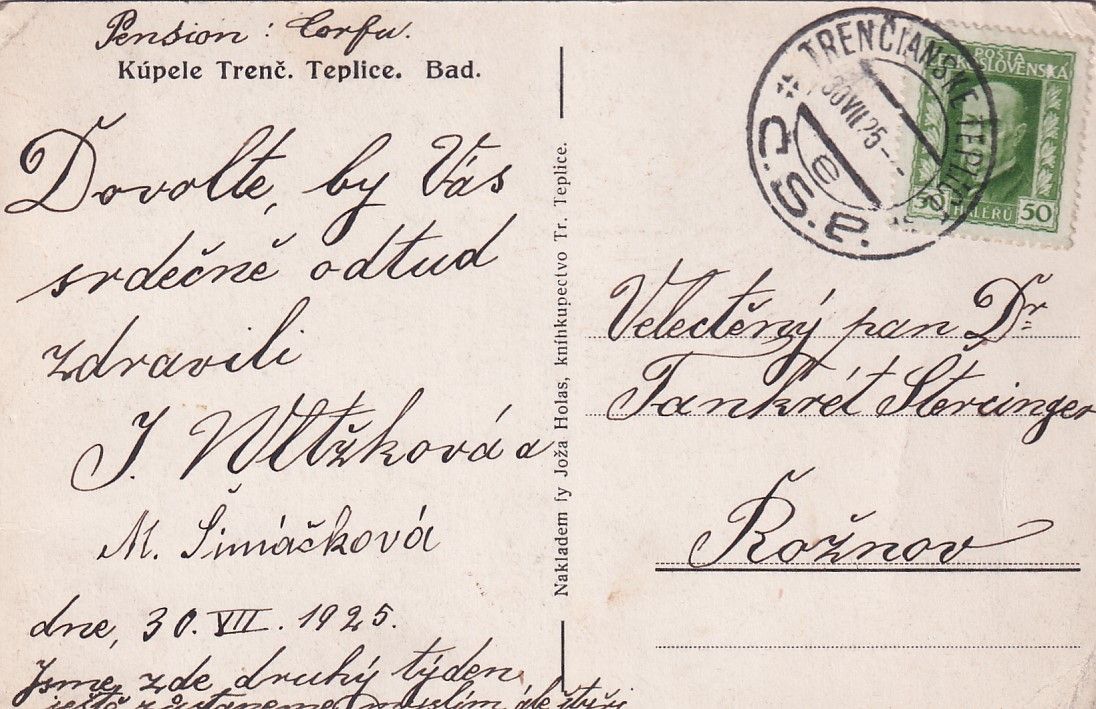 Pension: Corfu.
Kúpele Trenč. Teplice. Bad.
Dovolte, by Vás
srdečně odtud
zdravili
J. a
M. Šimáčková
dne, 30. VII. 1925.
Jsme zde druhý týden,
ještě zůstaneme myslím ale
Nakladem fy Joža Holas, knínkupectvo Tr. Teplice.
TRENČIANSKE TEPLICE
30 VII 25
e
Č.S.P.
POŠTA
ČESKOSLOVENSKÁ
50 HALÉRŮ 50
Velectěný pan Dr
Tankrét Stercinger
Rožnov